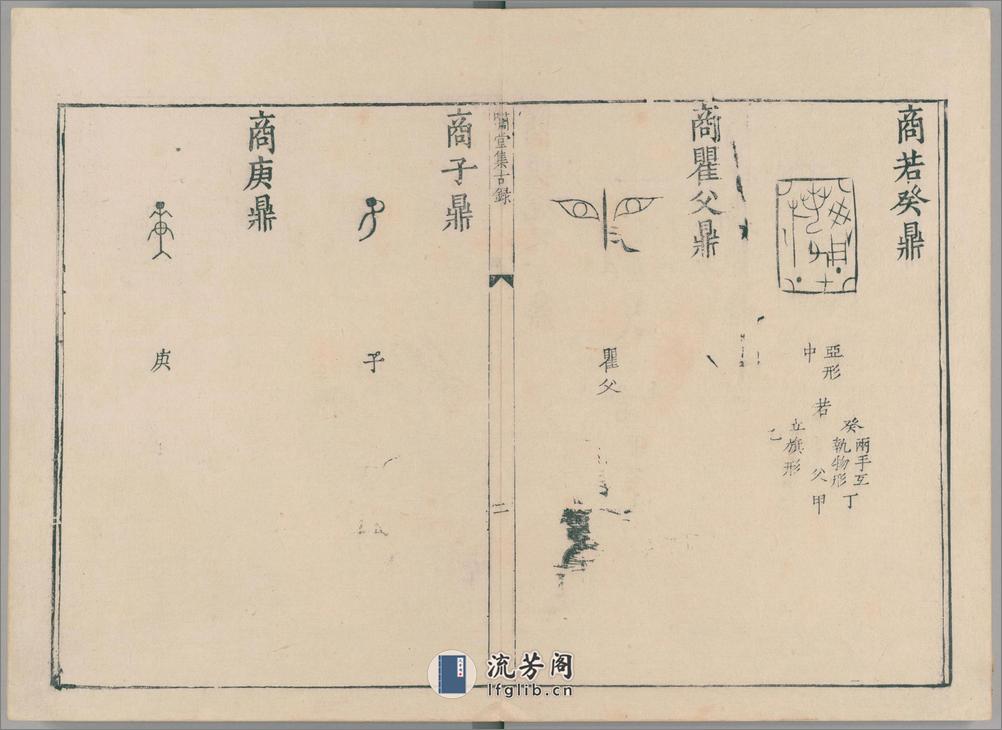 商若癸鼎
亞形
中
若
癸
兩手互
執物形
丁
父甲
立旗形
乙
商瞿父鼎
瞿父
嘯堂集古録
二
商子鼎
子
商庚鼎
庚
流芳阁
lfglib.cn